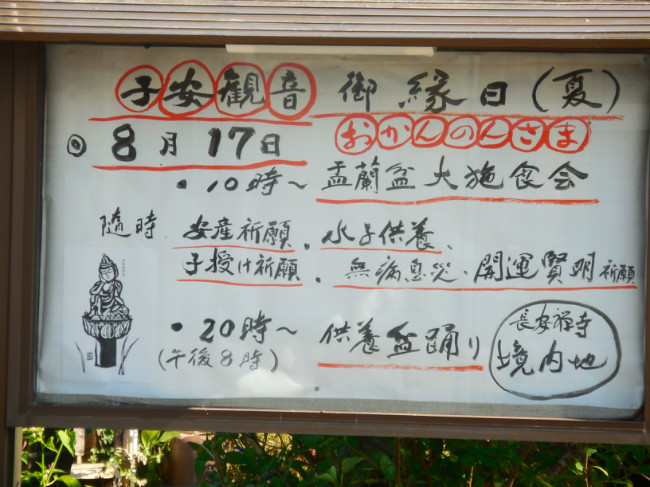 子安観音 御縁日(夏)
◎ 8月17日 おかんのんさま
・10時~ 盂蘭盆大施食会
随時 安産祈願、水子供養、
子授け祈願、無病息災・開運賢明祈願
・20時~ 供養盆踊り
(午後8時)
長安禅寺
境内地